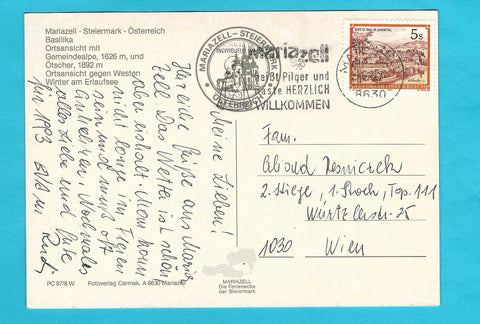 Mariazell - Steiermark - Österreich
Basilika
Ortsansicht mit
Gemeindealpe, 1626 m, und
Ötscher, 1892 m
Ortsansicht gegen Westen
Winter am Erlaufsee
MARIAZELL - STEIERMARK
ÖSTERREICH
Mariazell
heißt Pilger und
Gäste HERZLICH
WILLKOMMEN
5s
8630
Meine Lieben!
Herzliche Grüße aus Maria
zell. Das Wetter ist schön
aber eiskalt. Man kann
nicht lange im Freien
sein und muß oft
Nochmals
alles Liebe und Gute
für 1993
Rudi
Fam.
2. Stiege, 1. Stock, Top. 111
Würtzlerstr. 25
1030 Wien
PC 87/8 W Fotoverlag Cermak, A-8630 Mariazell
MARIAZELL
Die Ferienecke
der Steiermark